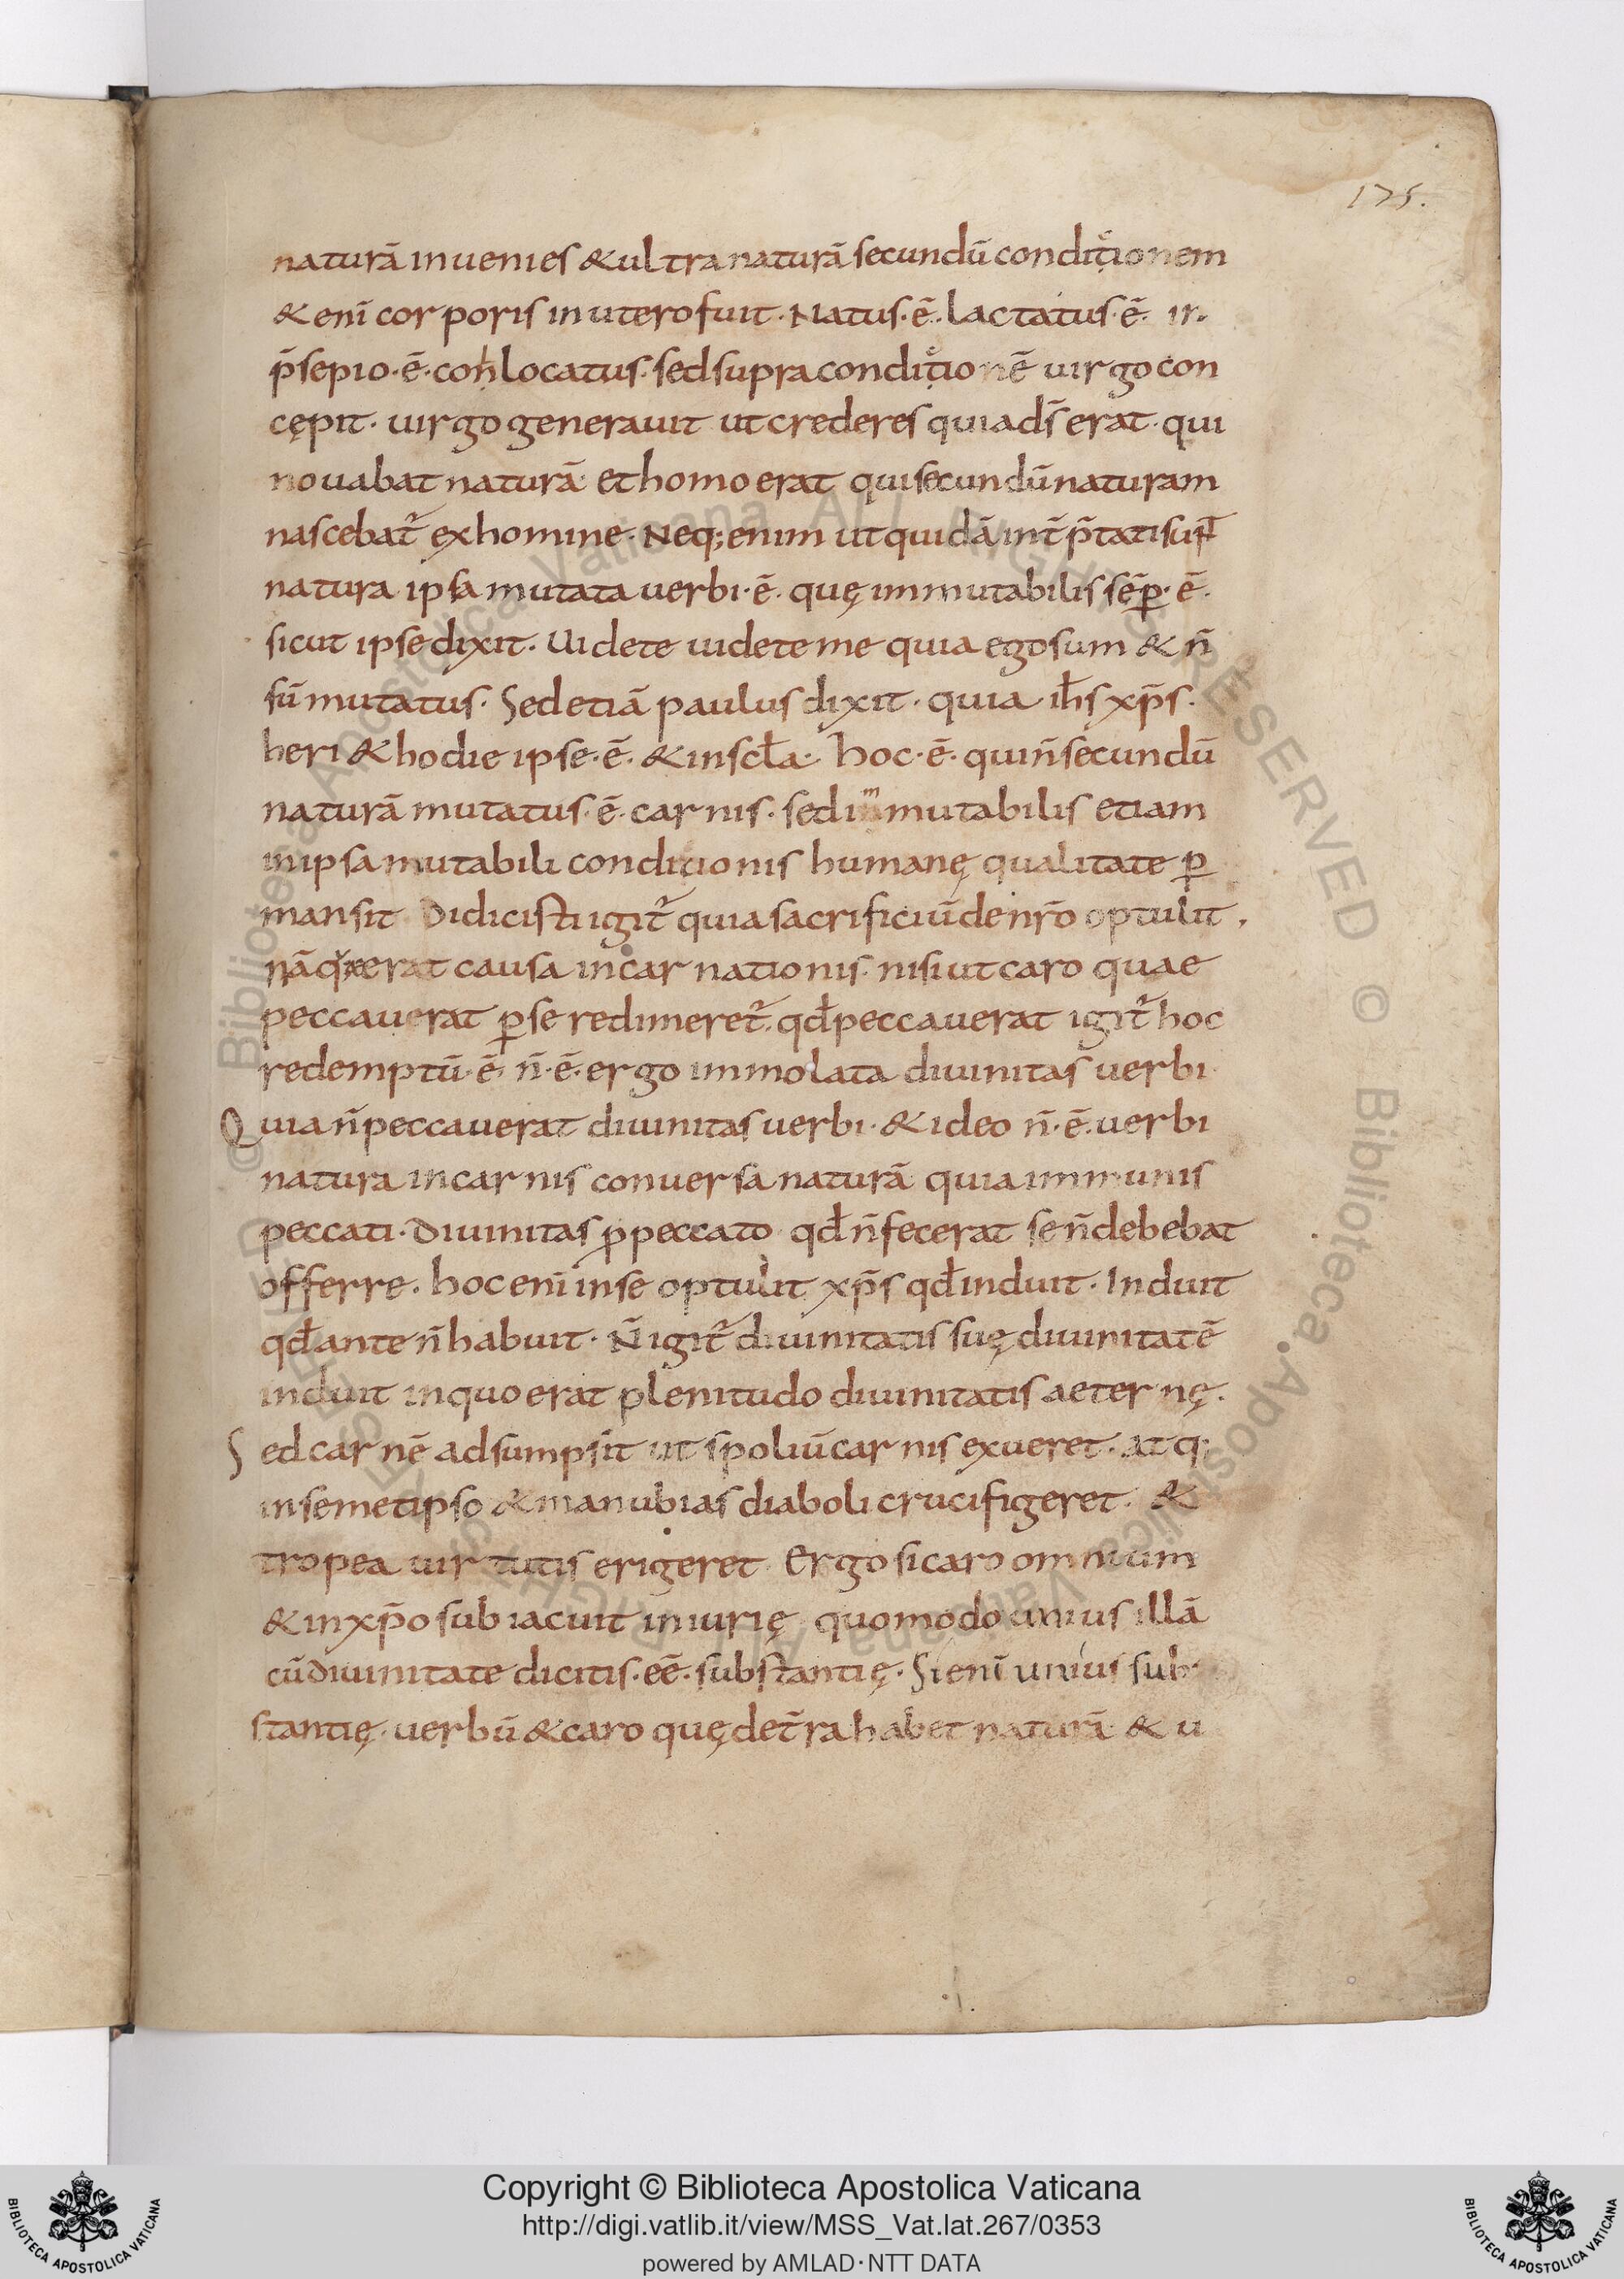 175.
naturā inuenies & ultra naturā secundū conditionem
& enī corporis in utero fuit · Natus · ē · lactatus · ē · in
p̄sepio · ē · conlocatus · sed supra conditionē uirgo con
cępit · uirgo generauit ut crederes quia d̄s erat · qui
nouabat naturā et homo erat qui secundū naturam
nascebat̄ ex homine · Neq; enim ut quidā int̄p̄tati sunt
natura ipsa mutata uerbi · ē · quę immutabilis sēꝑ · ē ·
sicut ipse dixit · Uidete uidete me quia ego sum & n̄
sū mutatus · Sed etiā paulus dixit · quia ih̄s xp̄s ·
heri & hodie ipse · ē · & in scl̄a · hoc · ē · qui n̄ secundū
naturā mutatus · ē · carnis · sed immutabilis etiam
in ipsa mutabili conditionis humanę qualitate ꝑ
mansit Didicisti igit̄ quia sacrificiū de nr̄o optulit ·
nā q erat causa incarnationis · nisi ut caro quae
peccauerat ꝑ se redimeret̄ · qd̄ peccauerat igit̄ hoc
redemptū · ē · n̄ · ē · ergo immolata diuinitas uerbi ·
Quia n̄ peccauerat diuinitas uerbi · & ideo n̄ · ē · uerbi
natura in carnis conuersa naturā quia immunis
peccati · Diuinitas ꝓ peccato qd̄ n̄ fecerat se n̄ debebat
offerre · hoc enī in se optulit xp̄s qd̄ induit · Induit
qd̄ ante n̄ habuit · N̄ igit̄ diuinitatis suę diuinitatē
induit in quo erat plenitudo diuinitatis aeternę ·
Sed carnē adsumpsit ut spoliū carnis exueret · atq;
in semetipso & manubias diaboli crucifigeret · &
tropea uirtutis erigeret · Ergo si caro omnium
& in xp̄o subiacuit iniurię quomodo unius illā
cū diuinitate dicitis · eē · substantię · Si enī unius sub
stantię · uerbū & caro quę det̄ra habet naturā & u
Copyright © Biblioteca Apostolica Vaticana
http://digi.vatlib.it/view/MSS_Vat.lat.267/0353
powered by AMLAD · NTT DATA
BIBLIOTECA APOSTOLICA VATICANA
BIBLIOTECA APOSTOLICA VATICANA